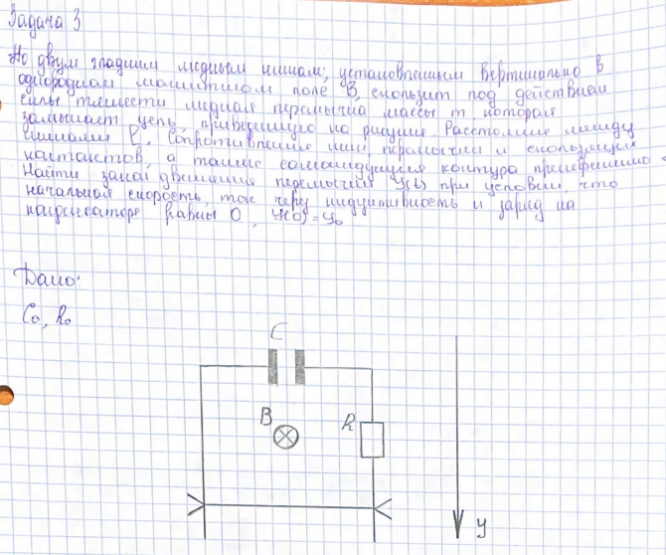 Задача 3
По двум гладким медным шинам, установленным вертикально в
однородном магнитном поле B, скользит под действием
силы тяжести медная перемычка массы m, которая
замыкает цепь, приведенную на рисунке. Расстояние между
шинами l. Сопротивление шин, перемычки и скользящих
контактов, а также самоиндукция контура пренебрежимо
Найти закон движения перемычки y(t) при условии, что
начальная скорость, ток через индуктивность и заряд на
конденсаторе равны 0, y(0)=y₀
Дано:
C₀, R₀
C
B
R
y